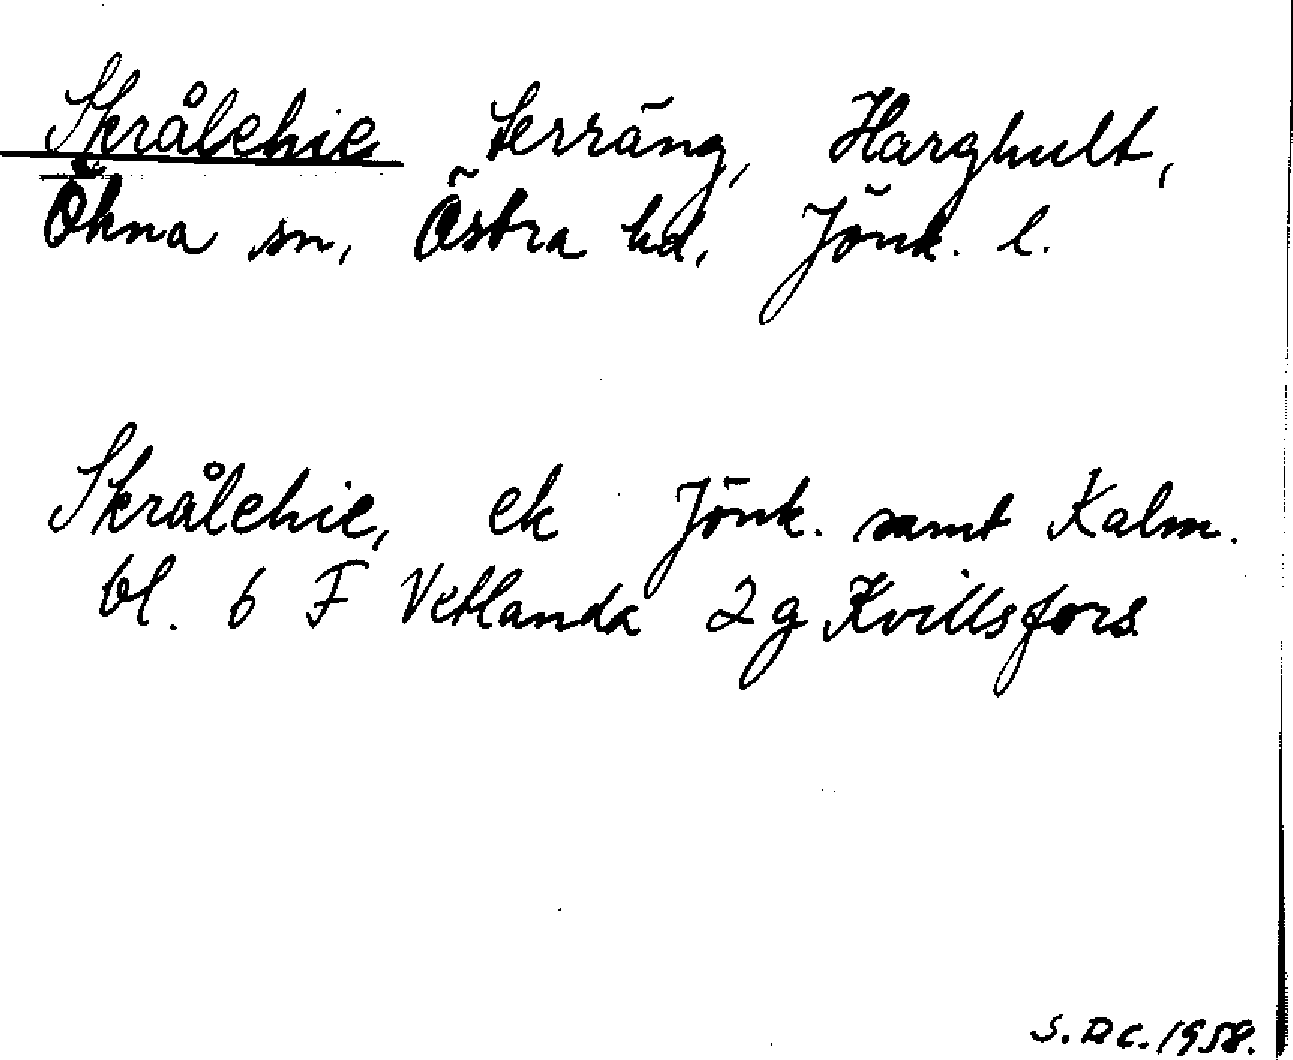 Skrålehie terräng, Harghult,
Ökna sn, Östra hd, Jönk. l.
Skrålehie, ek Jönk. samt Kalm.
bl. 6 F Vetlanda 2g Kvillsfors
S.DC.1958.